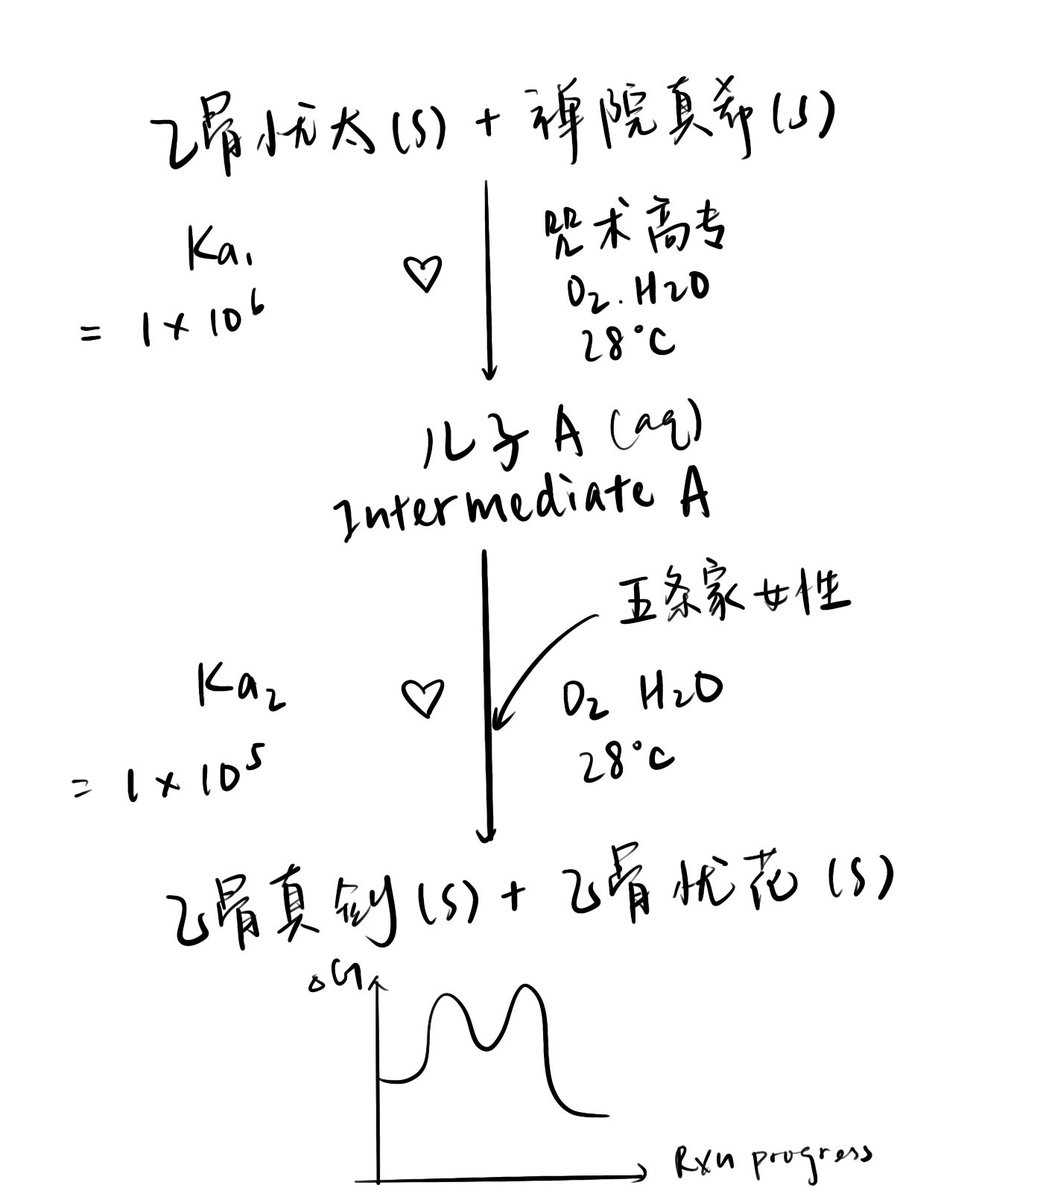 乙骨忧太(s) + 禅院真希(s)
Ka₁
= 1 × 10⁶
♡
咒术高专
O₂. H₂O
28°C
儿子 A (aq)
Intermediate A
五条家女性
Ka₂
= 1 × 10⁵
♡
O₂ H₂O
28°C
乙骨真剑(s) + 乙骨忧花(s)
△G
Rxn progress